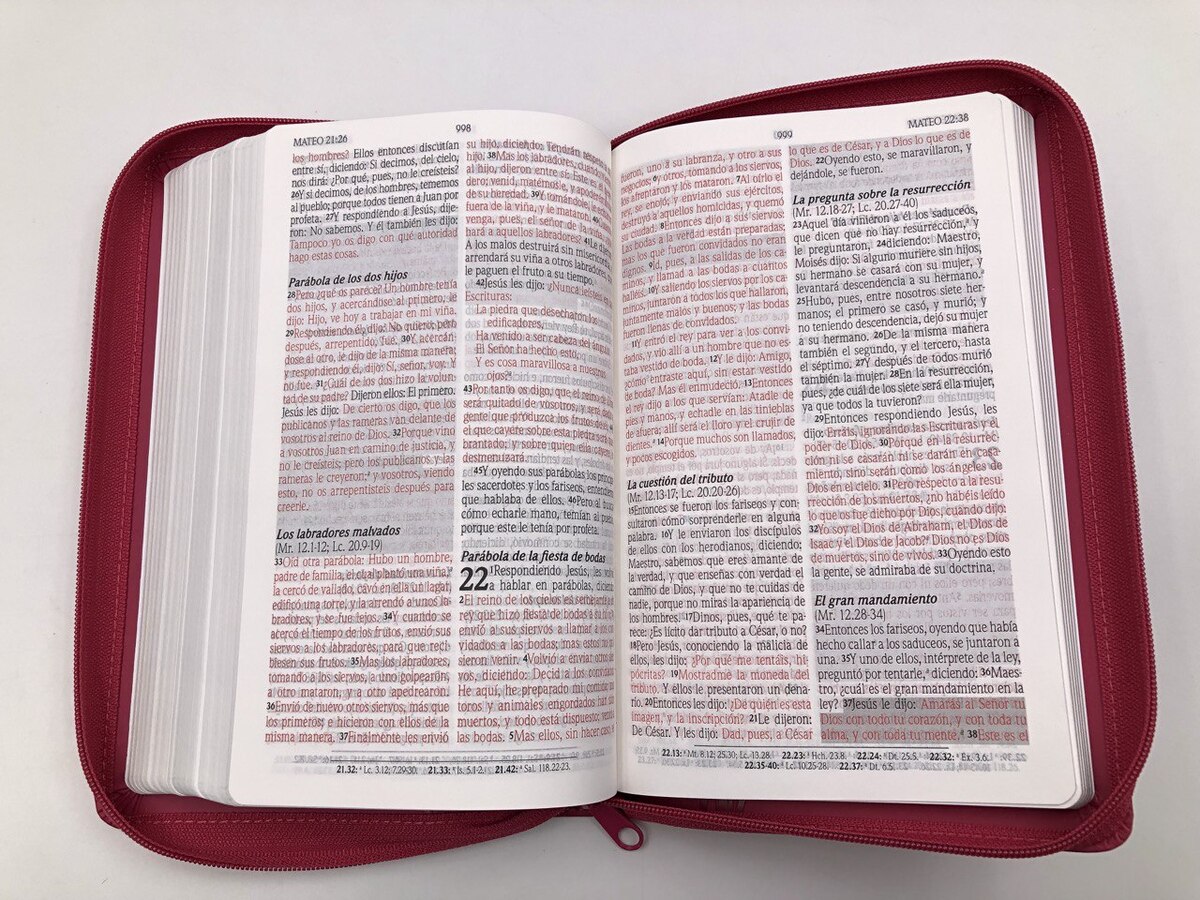 MATEO 21:26
998
los hombres? Ellos entonces discutían
entre sí, diciendo: Si decimos, del cielo,
nos dirá: ¿Por qué, pues, no le creísteis?
26Y si decimos, de los hombres, tememos
al pueblo; porque todos tienen a Juan por
profeta. 27Y respondiendo a Jesús, dije-
ron: No sabemos. Y él también les dijo:
Tampoco yo os digo con qué autoridad
hago estas cosas.
Parábola de los dos hijos
28Pero ¿qué os parece? Un hombre tenía
dos hijos, y acercándose al primero, le
dijo: Hijo, ve hoy a trabajar en mi viña.
29Respondiendo él, dijo: No quiero; pero
después, arrepentido, fue. 30Y acercán-
dose al otro, le dijo de la misma manera;
y respondiendo él, dijo: Sí, señor, voy. Y
no fue. 31¿Cuál de los dos hizo la volun-
tad de su padre? Dijeron ellos: El primero.
Jesús les dijo: De cierto os digo, que los
publicanos y las rameras van delante de
vosotros al reino de Dios. 32Porque vino
a vosotros Juan en camino de justicia, y
no le creísteis; pero los publicanos y las
rameras le creyeron;ª y vosotros, viendo
esto, no os arrepentisteis después para
creerle.
Los labradores malvados
(Mr. 12.1-12; Lc. 20.9-19)
33Oíd otra parábola: Hubo un hombre,
padre de familia, el cual plantó una viña,ª
la cercó de vallado, cavó en ella un lagar,
edificó una torre, y la arrendó a unos la-
bradores, y se fue lejos. 34Y cuando se
acercó el tiempo de los frutos, envió sus
siervos a los labradores, para que reci-
biesen sus frutos. 35Mas los labradores,
tomando a los siervos, a uno golpearon,
a otro mataron, y a otro apedrearon.
36Envió de nuevo otros siervos, más que
los primeros; e hicieron con ellos de la
misma manera. 37Finalmente les envió
su hijo, diciendo: Tendrán respeto
hijo. 38Mas los labradores, cuando
al hijo, dijeron entre sí: Este es el
dero; venid, matémosle, y apoderé
de su heredad. 39Y tomándole, le
fuera de la viña, y le mataron. 40
venga, pues, el señor de la viña
hará a aquellos labradores? 41Le dije
A los malos destruirá sin misericordia
arrendará su viña a otros labradores
le paguen el fruto a su tiempo.
42Jesús les dijo: ¿Nunca leísteis en
Escrituras:
La piedra que desecharon los
edificadores,
Ha venido a ser cabeza del ángulo
El Señor ha hecho esto,
Y es cosa maravillosa a nuestros
ojos?ª
43Por tanto os digo, que el reino de
será quitado de vosotros, y será dado
gente que produzca los frutos de él.
el que cayere sobre esta piedra será
brantado; y sobre quien ella cayere
desmenuzará.
45Y oyendo sus parábolas los princi
les sacerdotes y los fariseos, entendie
que hablaba de ellos. 46Pero al
cómo echarle mano, temían al pueblo
porque este le tenía por profeta.
Parábola de la fiesta de bodas
22 1Respondiendo Jesús, les vol
a hablar en parábolas, diciend
2El reino de los cielos es semejante a
rey que hizo fiesta de bodas a su hijo
envió a sus siervos a llamar a los con
vidados a las bodas; mas estos no
sieron venir. 4Volvió a enviar otros
vos, diciendo: Decid a los convidad
He aquí, he preparado mi comida; mis
toros y animales engordados han sido
muertos, y todo está dispuesto; venid
las bodas. 5Mas ellos, sin hacer caso
21.32: ª Lc. 3.12; 7.29-30. 21.33: ª Is. 5.1-2. 21.42: ª Sal. 118.22-23.
999
MATEO 22:38
fueron, uno a su labranza, y otro a sus
negocios; 6y otros, tomando a los siervos,
los afrentaron y los mataron. 7Al oírlo el
rey, se enojó; y enviando sus ejércitos,
destruyó a aquellos homicidas, y quemó
su ciudad. 8Entonces dijo a sus siervos:
Las bodas a la verdad están preparadas;
mas los que fueron convidados no eran
dignos. 9Id, pues, a las salidas de los ca-
minos, y llamad a las bodas a cuantos
halléis. 10Y saliendo los siervos por los ca-
minos, juntaron a todos los que hallaron,
juntamente malos y buenos; y las bodas
fueron llenas de convidados.
11Y entró el rey para ver a los convi-
dados, y vio allí a un hombre que no es-
taba vestido de boda. 12Y le dijo: Amigo,
¿cómo entraste aquí, sin estar vestido
de boda? Mas él enmudeció. 13Entonces
el rey dijo a los que servían: Atadle de
pies y manos, y echadle en las tinieblas
de afuera; allí será el lloro y el crujir de
dientes.ª 14Porque muchos son llamados,
y pocos escogidos.
La cuestión del tributo
(Mr. 12.13-17; Lc. 20.20-26)
15Entonces se fueron los fariseos y con-
sultaron cómo sorprenderle en alguna
palabra. 16Y le enviaron los discípulos
de ellos con los herodianos, diciendo:
Maestro, sabemos que eres amante de
la verdad, y que enseñas con verdad el
camino de Dios, y que no te cuidas de
nadie, porque no miras la apariencia de
los hombres. 17Dinos, pues, qué te pa-
rece: ¿Es lícito dar tributo a César, o no?
18Pero Jesús, conociendo la malicia de
ellos, les dijo: ¿Por qué me tentáis, hi-
pócritas? 19Mostradme la moneda del
tributo. Y ellos le presentaron un dena-
rio. 20Entonces les dijo: ¿De quién es esta
imagen, y la inscripción? 21Le dijeron:
De César. Y les dijo: Dad, pues, a César
lo que es de César, y a Dios lo que es de
Dios. 22Oyendo esto, se maravillaron, y
dejándole, se fueron.
La pregunta sobre la resurrección
(Mr. 12.18-27; Lc. 20.27-40)
23Aquel día vinieron a él los saduceos,
que dicen que no hay resurrección,ª y
le preguntaron, 24diciendo: Maestro,
Moisés dijo: Si alguno muriere sin hijos,
su hermano se casará con su mujer, y
levantará descendencia a su hermano.ª
25Hubo, pues, entre nosotros siete her-
manos; el primero se casó, y murió; y
no teniendo descendencia, dejó su mujer
a su hermano. 26De la misma manera
también el segundo, y el tercero, hasta
el séptimo. 27Y después de todos murió
también la mujer. 28En la resurrección,
pues, ¿de cuál de los siete será ella mujer,
ya que todos la tuvieron?
29Entonces respondiendo Jesús, les
dijo: Erráis, ignorando las Escrituras y el
poder de Dios. 30Porque en la resurrec-
ción ni se casarán ni se darán en casa-
miento, sino serán como los ángeles de
Dios en el cielo. 31Pero respecto a la resu-
rrección de los muertos, ¿no habéis leído
lo que os fue dicho por Dios, cuando dijo:
32Yo soy el Dios de Abraham, el Dios de
Isaac y el Dios de Jacob?ª Dios no es Dios
de muertos, sino de vivos. 33Oyendo esto
la gente, se admiraba de su doctrina.
El gran mandamiento
(Mr. 12.28-34)
34Entonces los fariseos, oyendo que había
hecho callar a los saduceos, se juntaron a
una. 35Y uno de ellos, intérprete de la ley,
preguntó por tentarle,ª diciendo: 36Maes-
tro, ¿cuál es el gran mandamiento en la
ley? 37Jesús le dijo: Amarás al Señor tu
Dios con todo tu corazón, y con toda tu
alma, y con toda tu mente.ª 38Este es el
22.13: ª Mt. 8.12; 25.30; Lc. 13.28. 22.23: ª Hch. 23.8. 22.24: ª Dt. 25.5. 22.32: ª Ex. 3.6.
22.35-40: ª Lc. 10.25-28. 22.37: ª Dt. 6.5.